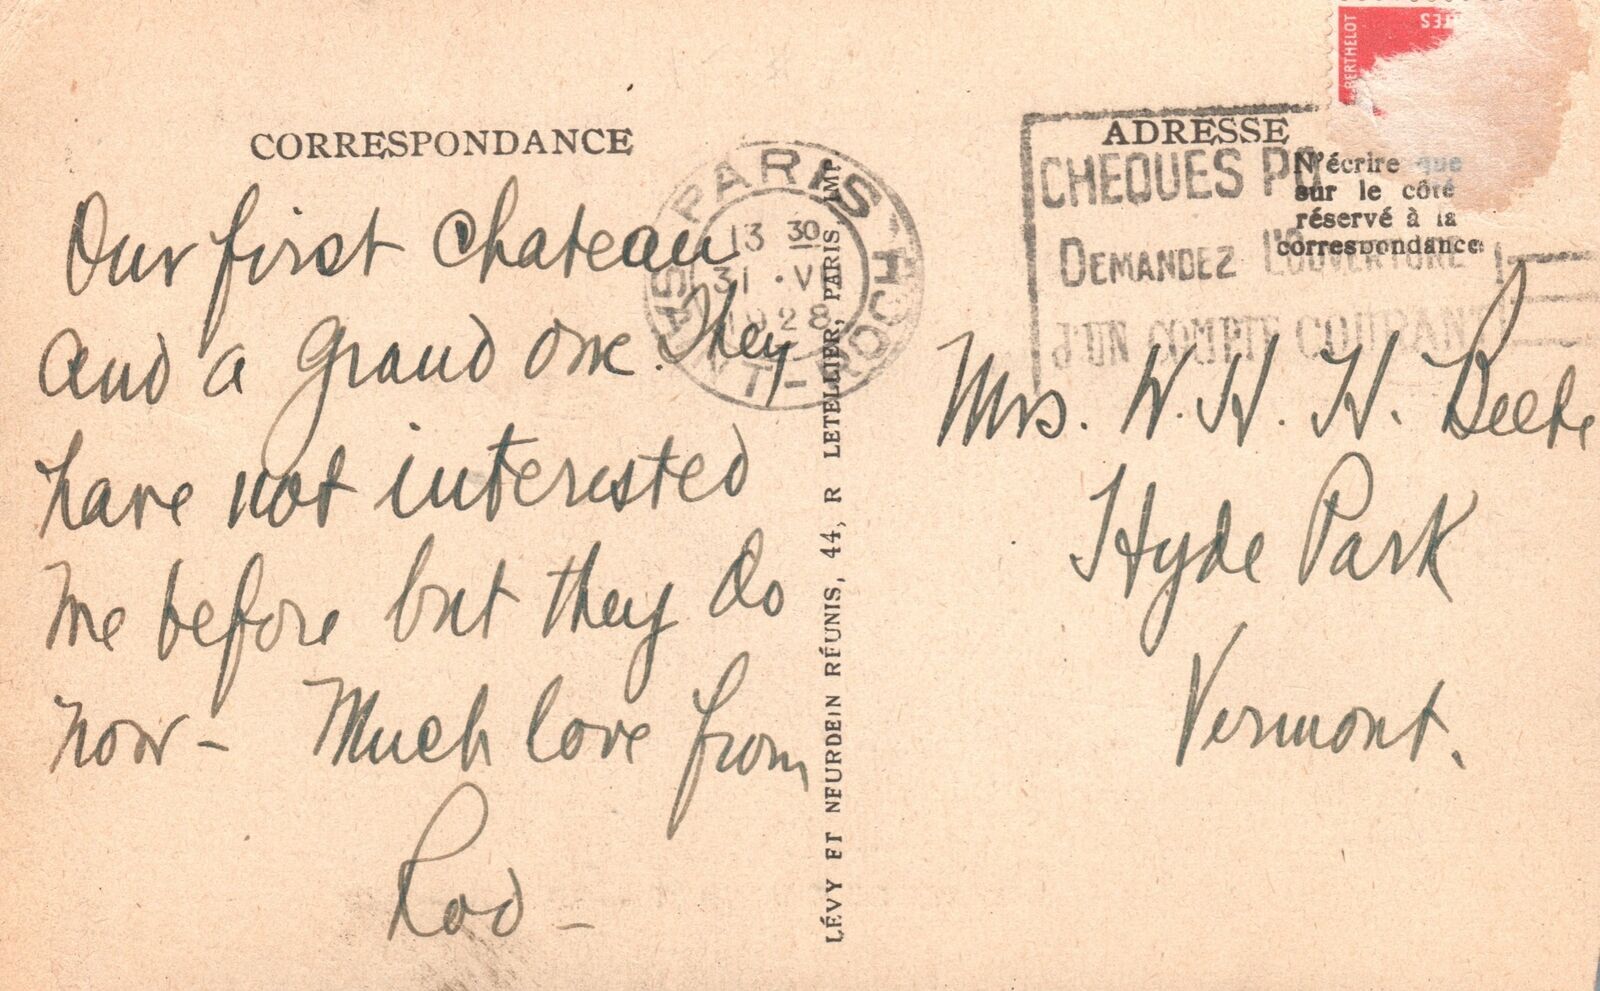 CORRESPONDANCE
Our first Chateau
and a grand one. They
have not interested
me before but they do
now - Much love from
Rod -
PARIS
R. SAINT-ROCH
13 30
31 · V
1928
LÉVY ET NEURDEIN RÉUNIS, 44, R LETELLIER, PARIS, IMP.
BERTHELOT
ADRESSE
N'écrire que
sur le côté
réservé à la
correspondance
CHEQUES PO
DEMANDEZ L'OUVERTURE
D'UN COMPTE COURANT
Mrs. W. H. H. Beebe
Hyde Park
Vermont.